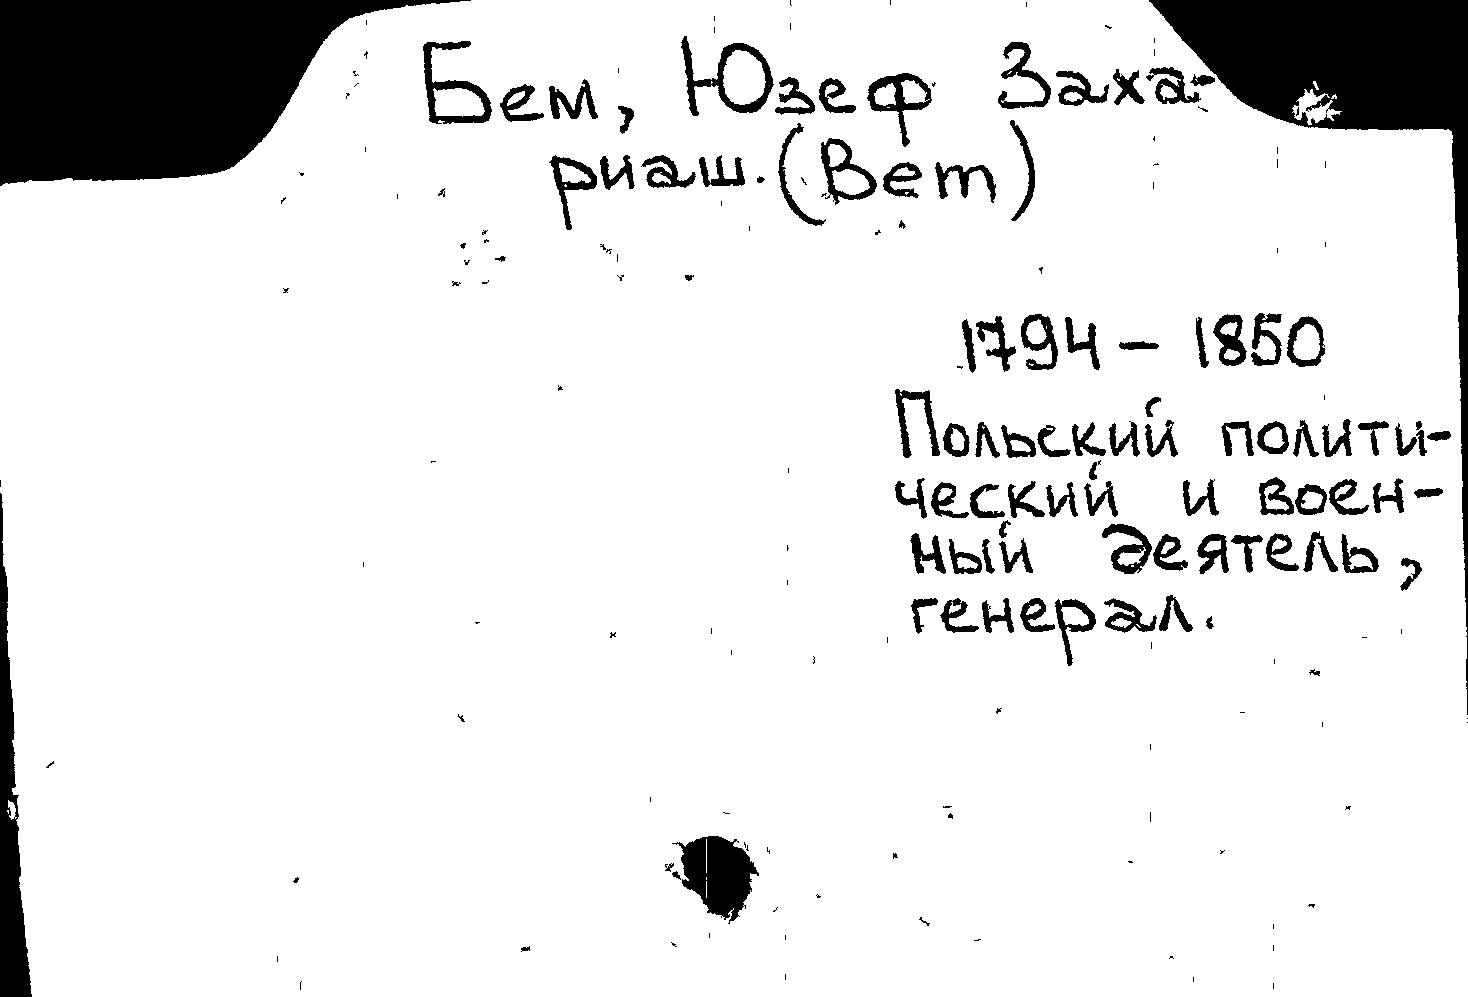 Бем, Юзеф Заха-
риаш. (Bem)
1794 – 1850
Польский полити-
ческий и воен-
ный деятель,
генерал.